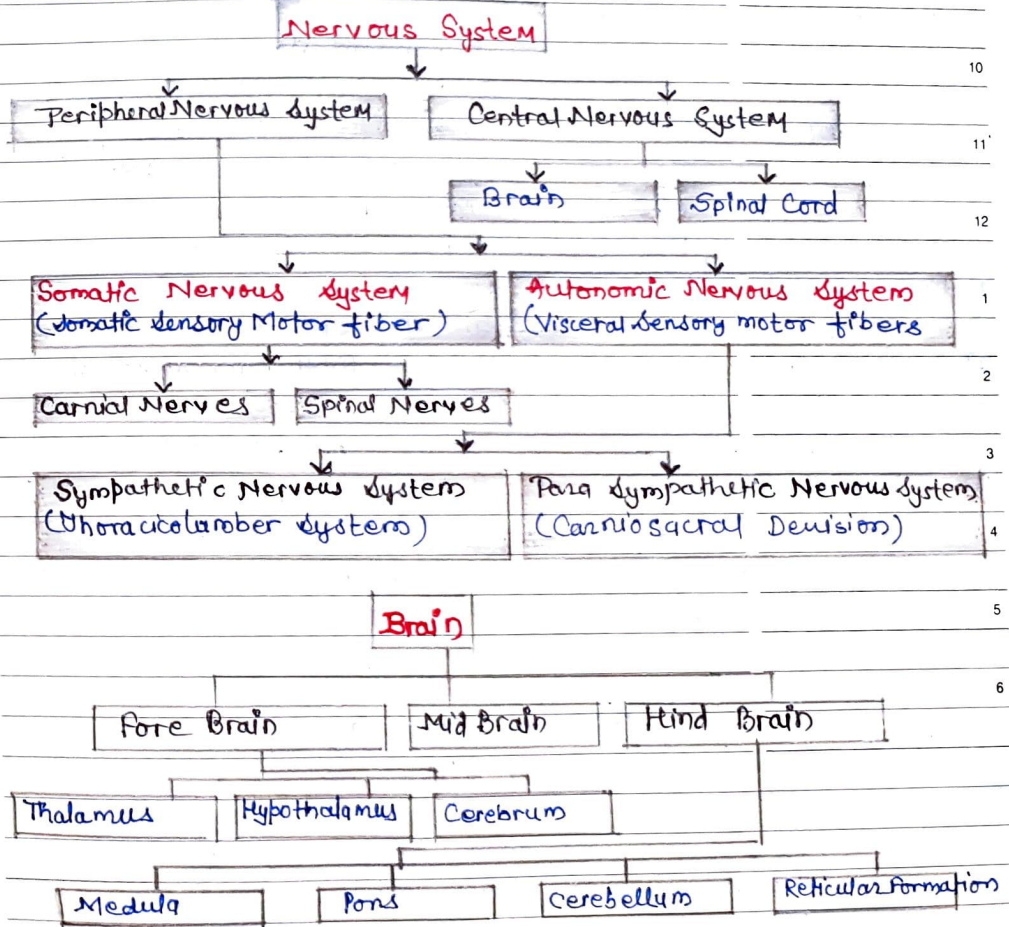 Nervous System
10
Peripheral Nervous System
Central Nervous System
11
Brain
Spinal Cord
12
Somatic Nervous System
(Somatic Sensory Motor fiber)
Autonomic Nervous System
(Visceral Sensory motor fibers
1
2
Carnial Nerves
Spinal Nerves
3
Sympathetic Nervous System
(Thoracicolamber System)
Para Sympathetic Nervous System
(Carniosacral Devision)
4
5
Brain
6
Fore Brain
Mid Brain
Hind Brain
Thalamus
Hypothalamus
Cerebrum
Medula
Pons
Cerebellum
Reticular Formation